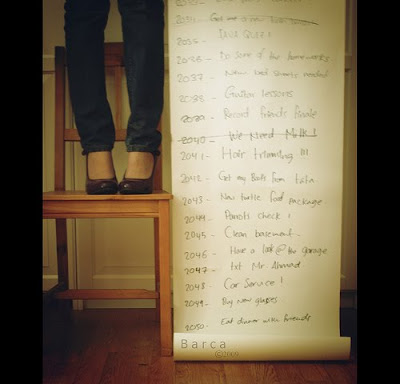 2034 - Get me a new
2035 -
2036 - Do some of the homeworks
2037 - New bed seems needed
2038 - Guitar lessons
2039 - Record friends finale
2040 - We Need Milk!
2041 - Hair trimming !!!
2042 - Get my Boots from Lala
2043 - New turtle food package
2044 - Parrots check!
2045 - Clean basement.
2046 - Have a look @ the garage
2047 - txt Mr. Ahmad
2048 - Car Service!
2049 - Buy New glasses.
2050 - Eat dinner with friends
Barca
©2009